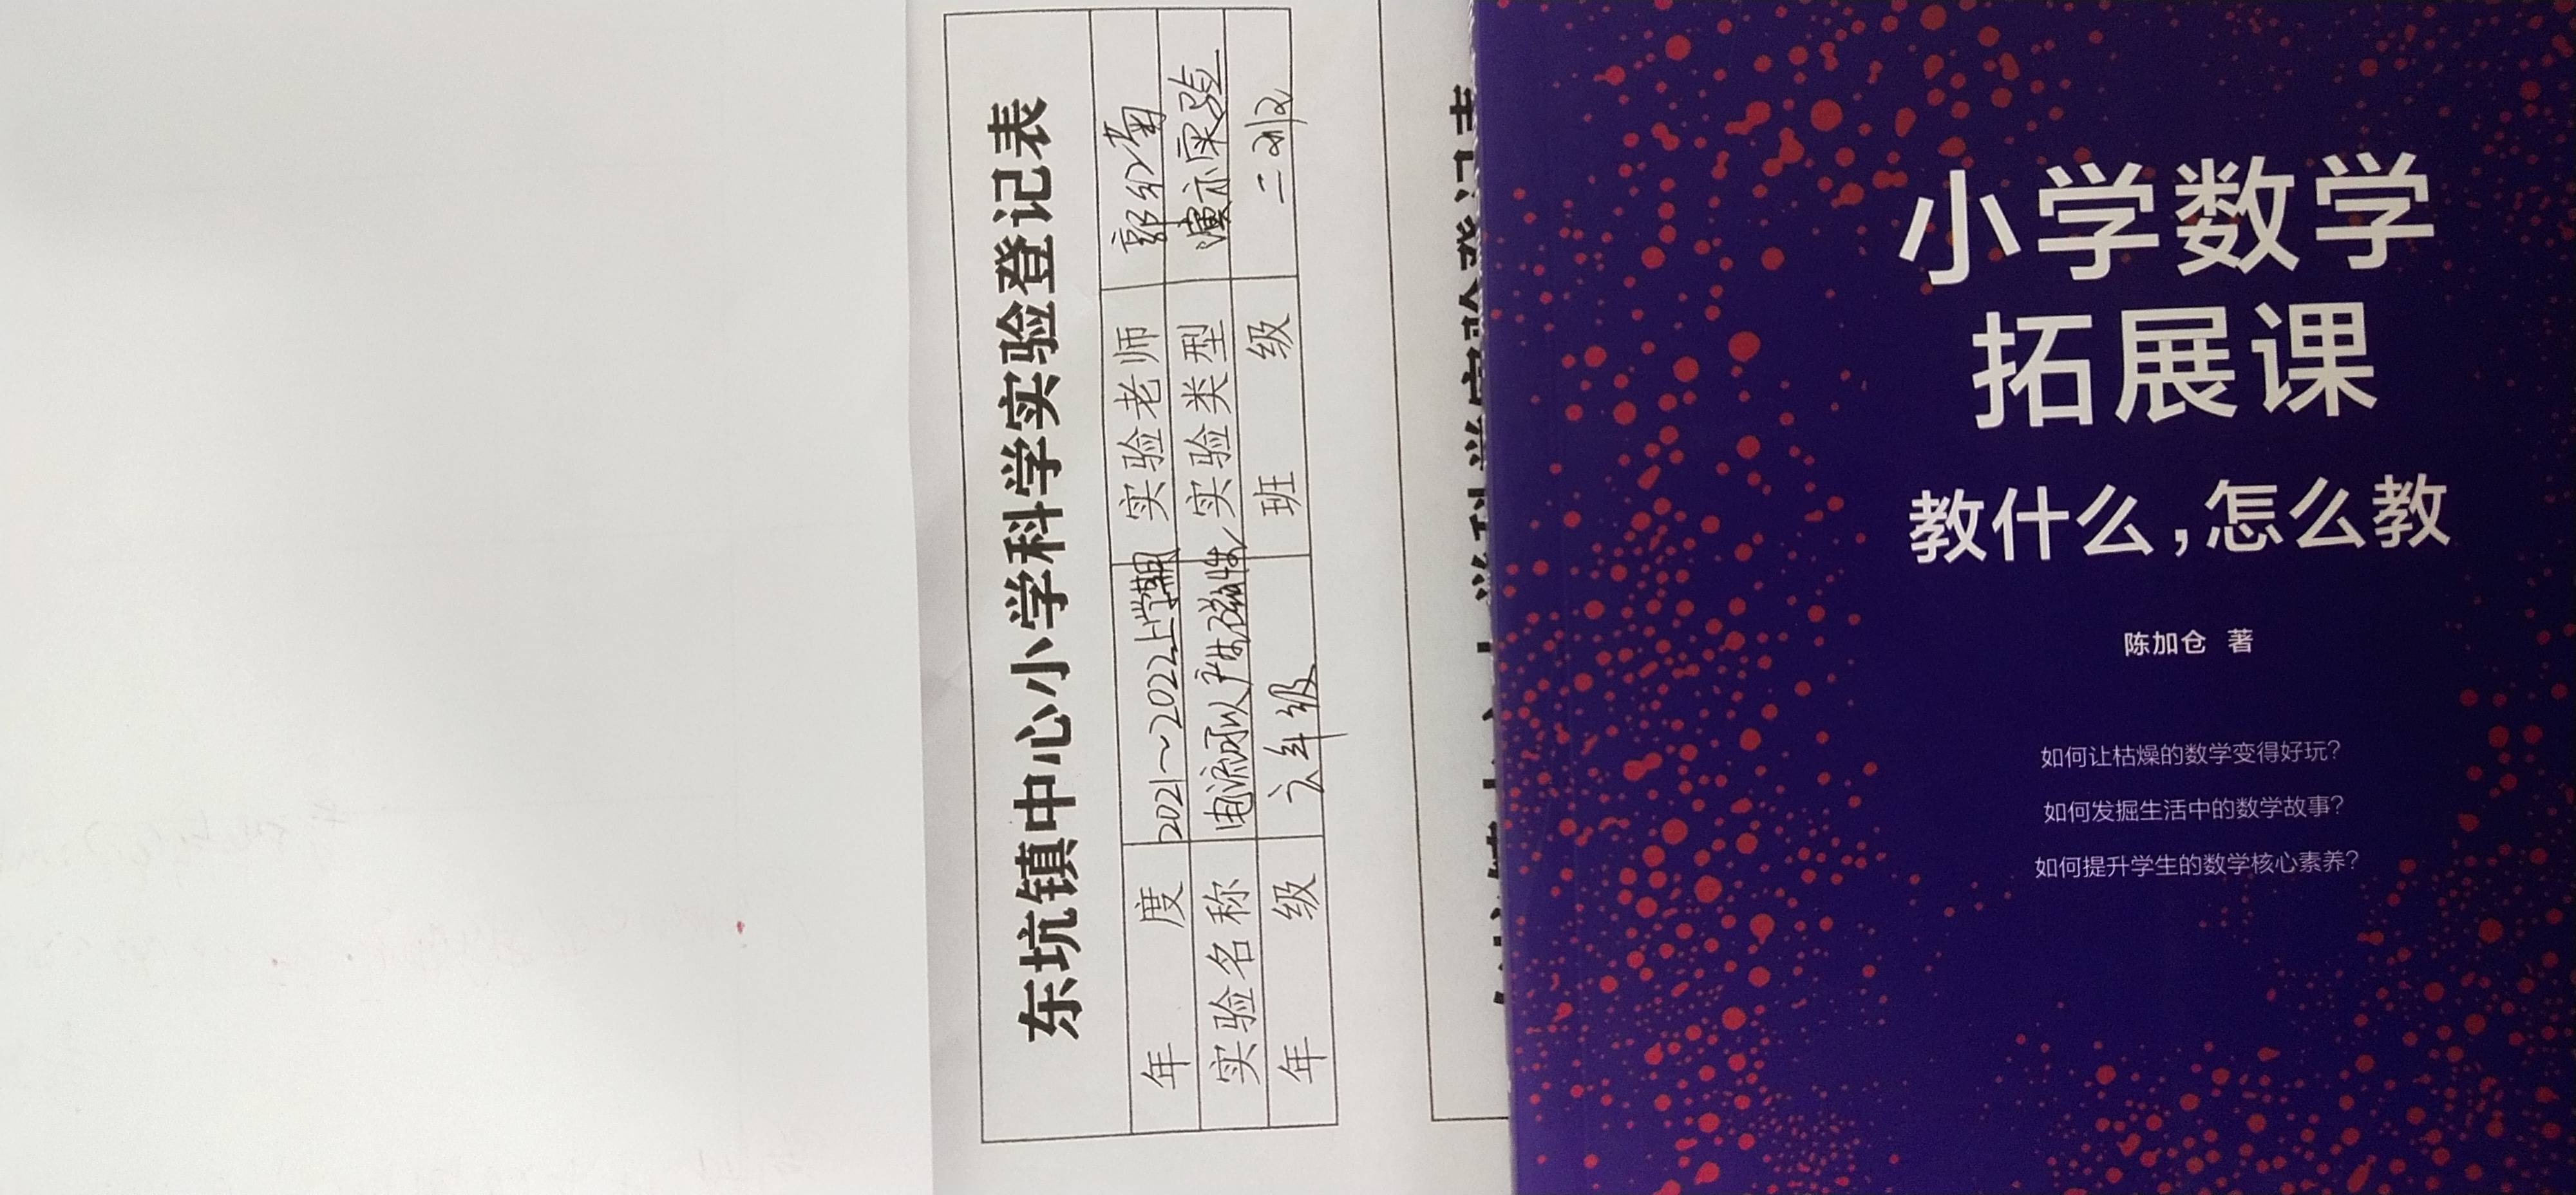 东坑镇中心小学科学实验登记表
年 度 2021~2022上学期 实验老师 郭幼南
实验名称 电流可以产生磁性 实验类型 演示实验
年 级 六年级 班 级 二班
小学数学
拓展课
教什么，怎么教
陈加仓 著
如何让枯燥的数学变得好玩?
如何发掘生活中的数学故事?
如何提升学生的数学核心素养?